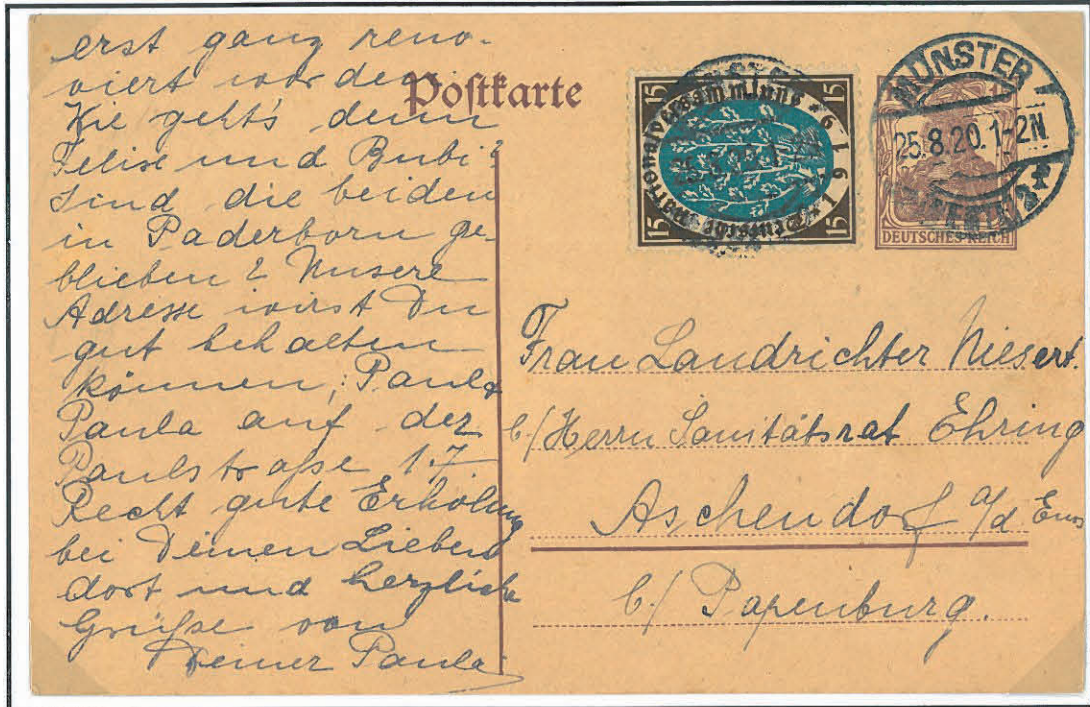 erst ganz reno-
viert worden.
Wie geht's denn
Felise und Bubi?
Sind die beiden
in Paderborn ge-
blieben? Unsere
Adresse wirst Du
gut behalten
können; Paul &
Paula auf der
Paulstraße 17.
Recht gute Erholung
bei Deinen Lieben
dort und herzliche
Grüße von
Deiner Paula
Postkarte
15 15
Deutsche Nationalversammlung * 1919 *
15 15
25.8.20.1
MÜNSTER
25.8.20.1-2N
DEUTSCHES REICH
Frau Landrichter Niesert.
b/Herrn Sanitätsrat Ehring
Aschendorf a/d Ems
b/ Papenburg.